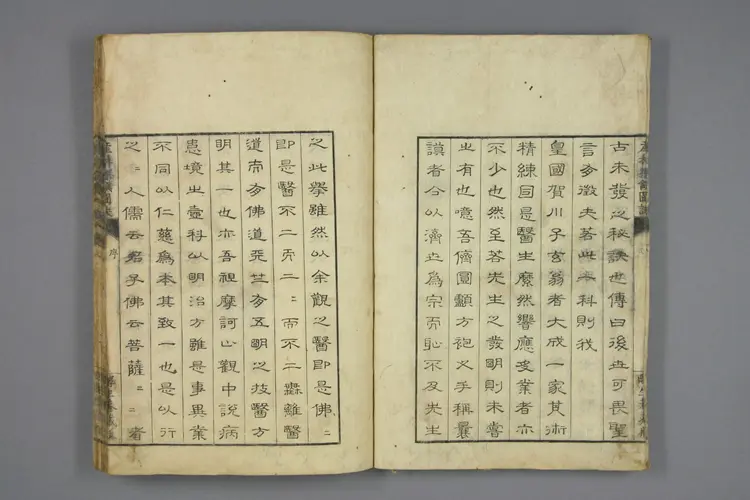 古未發之秘訣世傳曰後世可畏聖
言有徵夫若此本科則我
皇國賀川子玄翁者大成一家其術
精練回是醫生靡然響應受業者亦
不少也然至若先生之發明則未嘗
之有也噫吾儕圓顱方袍之手稱曩
謨者今以濟世為宗而恥不及先生
之此擧雖然以余觀之醫即是佛〻
即是醫不二而二〻而不二蠡雖醫
道帝有佛道亦有五明之技醫方
明其一也亦吾祖摩訶止觀中說病
患境之壹科以明治方雖是事異業
不同以仁慈為本其致一也是以行
之〻人儒云君子佛云菩薩〻〻者
序